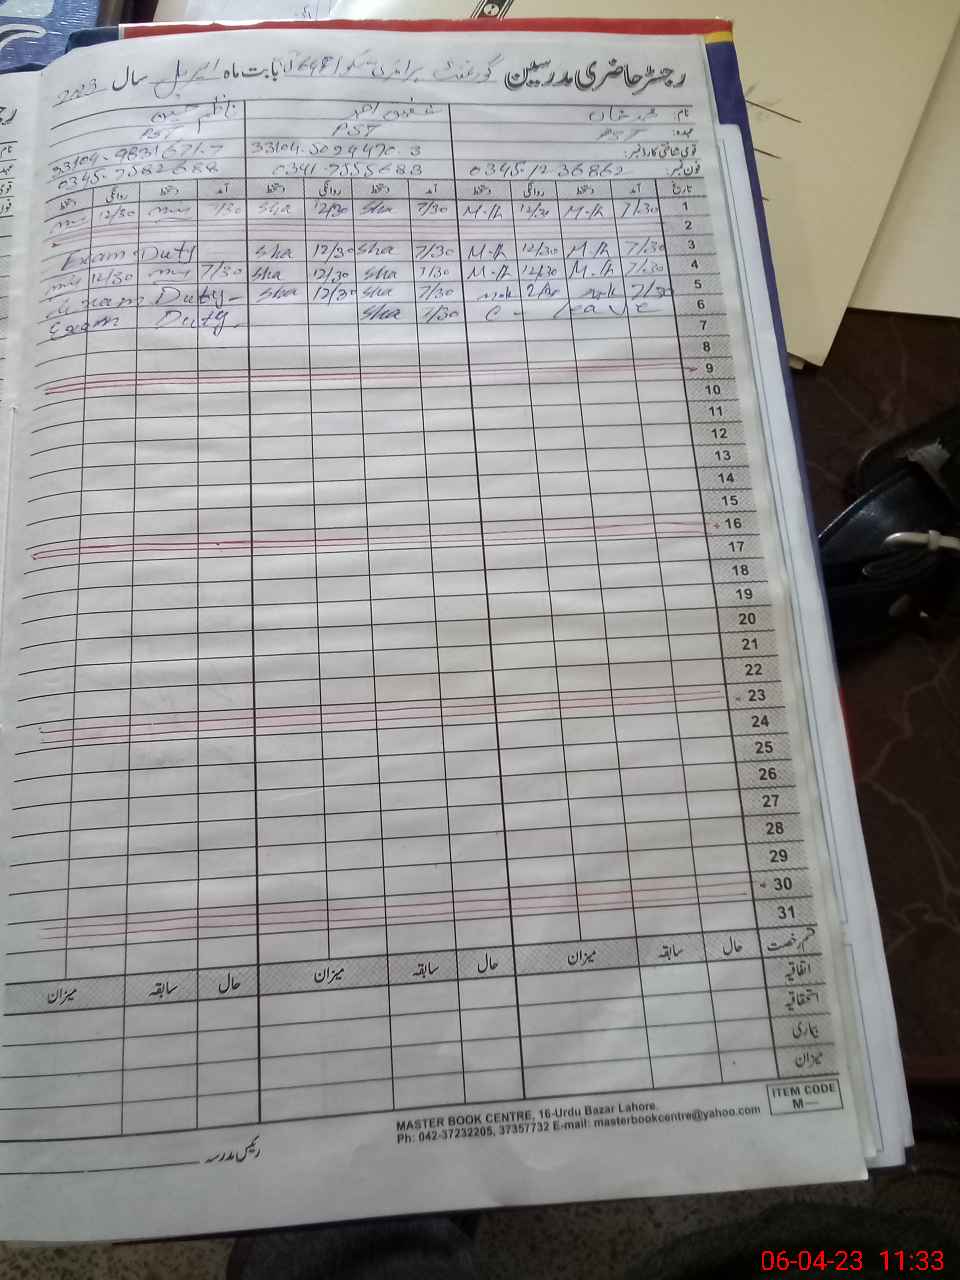 رجسٹر حاضری مدرسین گورنمنٹ پرائمری سکول بابت ماہ اپریل سال 2023
نام: محمد خان شفیق احمد ناظم حسین
عہدہ: PST PST PST
قومی شناختی کارڈ نمبر: 33104-5024470-3 33104-9831671-7
فون نمبر: 0345-1236862 0341-7555683 0345-7582688
تاریخ آمد دستخط روانگی دستخط آمد دستخط روانگی دستخط آمد دستخط روانگی دستخط
1 7/30 M-K 12/30 M-K 7/30 Sha 12/30 Sha 7/30 12/30
2
3 7/30 M-K 12/30 M-K 7/30 Sha 12/30 Sha Exam Duty
4 7/30 M-K 12/30 M-K 7/30 Sha 12/30 Sha 7/30 12/30
5 7/30 7/30 Sha 12/30 Sha Exam Duty-
6 C - leave 7/30 Sha Exam Duty-
7
8
9
10
11
12
13
14
15
16
17
18
19
20
21
22
23
24
25
26
27
28
29
30
31
قسم رخصت حال سابقہ میزان حال سابقہ میزان حال سابقہ میزان
اتفاقیہ
استحقاقیہ
بیماری
میزان
ITEM CODE
M—
MASTER BOOK CENTRE, 16-Urdu Bazar Lahore.
Ph: 042-37232205, 37357732 E-mail: masterbookcentre@yahoo.com
رئیس مدرسہ
06-04-23 11:33